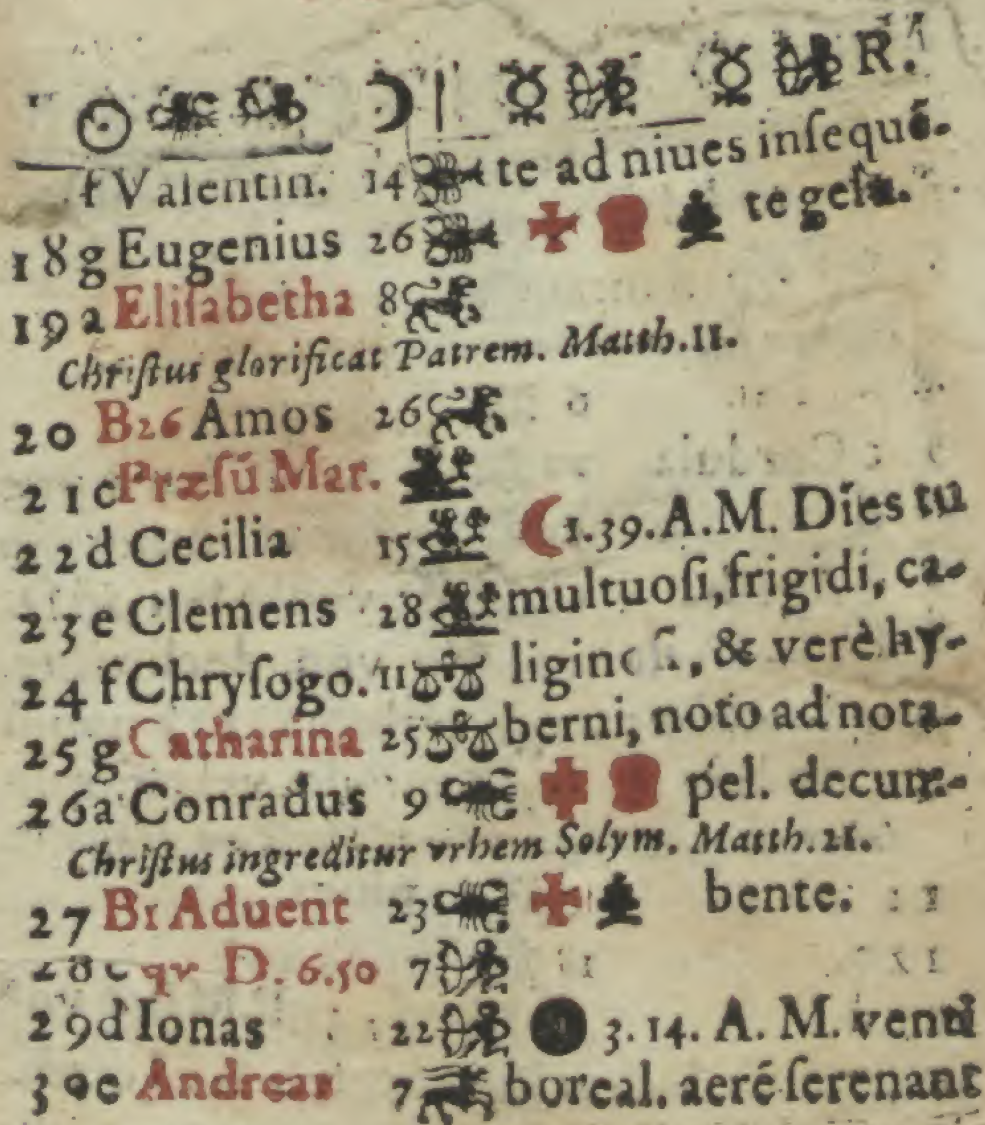 ☉ ♏ ♐ ☽ ☿ ♐ ☿ ♐ R.
f Valentin. 14 ♋ te ad niues inſequē-
18 g Eugenius 26 ♋ te gelu.
19 a Eliſabetha 8 ♌
Chriſtus glorificat Patrem. Matth. 11.
20 B 26 Amos 26 ♌
21 c Præſū Mar. ♍
22 d Cecilia 15 ♍ ☾ 1.39. A. M. Dies tu
23 e Clemens 28 ♍ multuoſi, frigidi, ca-
24 f Chryſogo. 11 ♎ , & verè hy-
25 g Catharina 25 ♎ berni, noto ad nota-
26 a Conradus 9 ♏ pel. decum-
Chriſtus ingreditur vrbem Solym. Matth. 21.
27 B1 Aduent 23 ♏ bente.
28 c qv D. 6.50 7 ♐
29 d Ionas 22 ♐ ● 3. 14. A. M. venti
30 e Andreas 7 ♑ boreal. aeré ſerenant